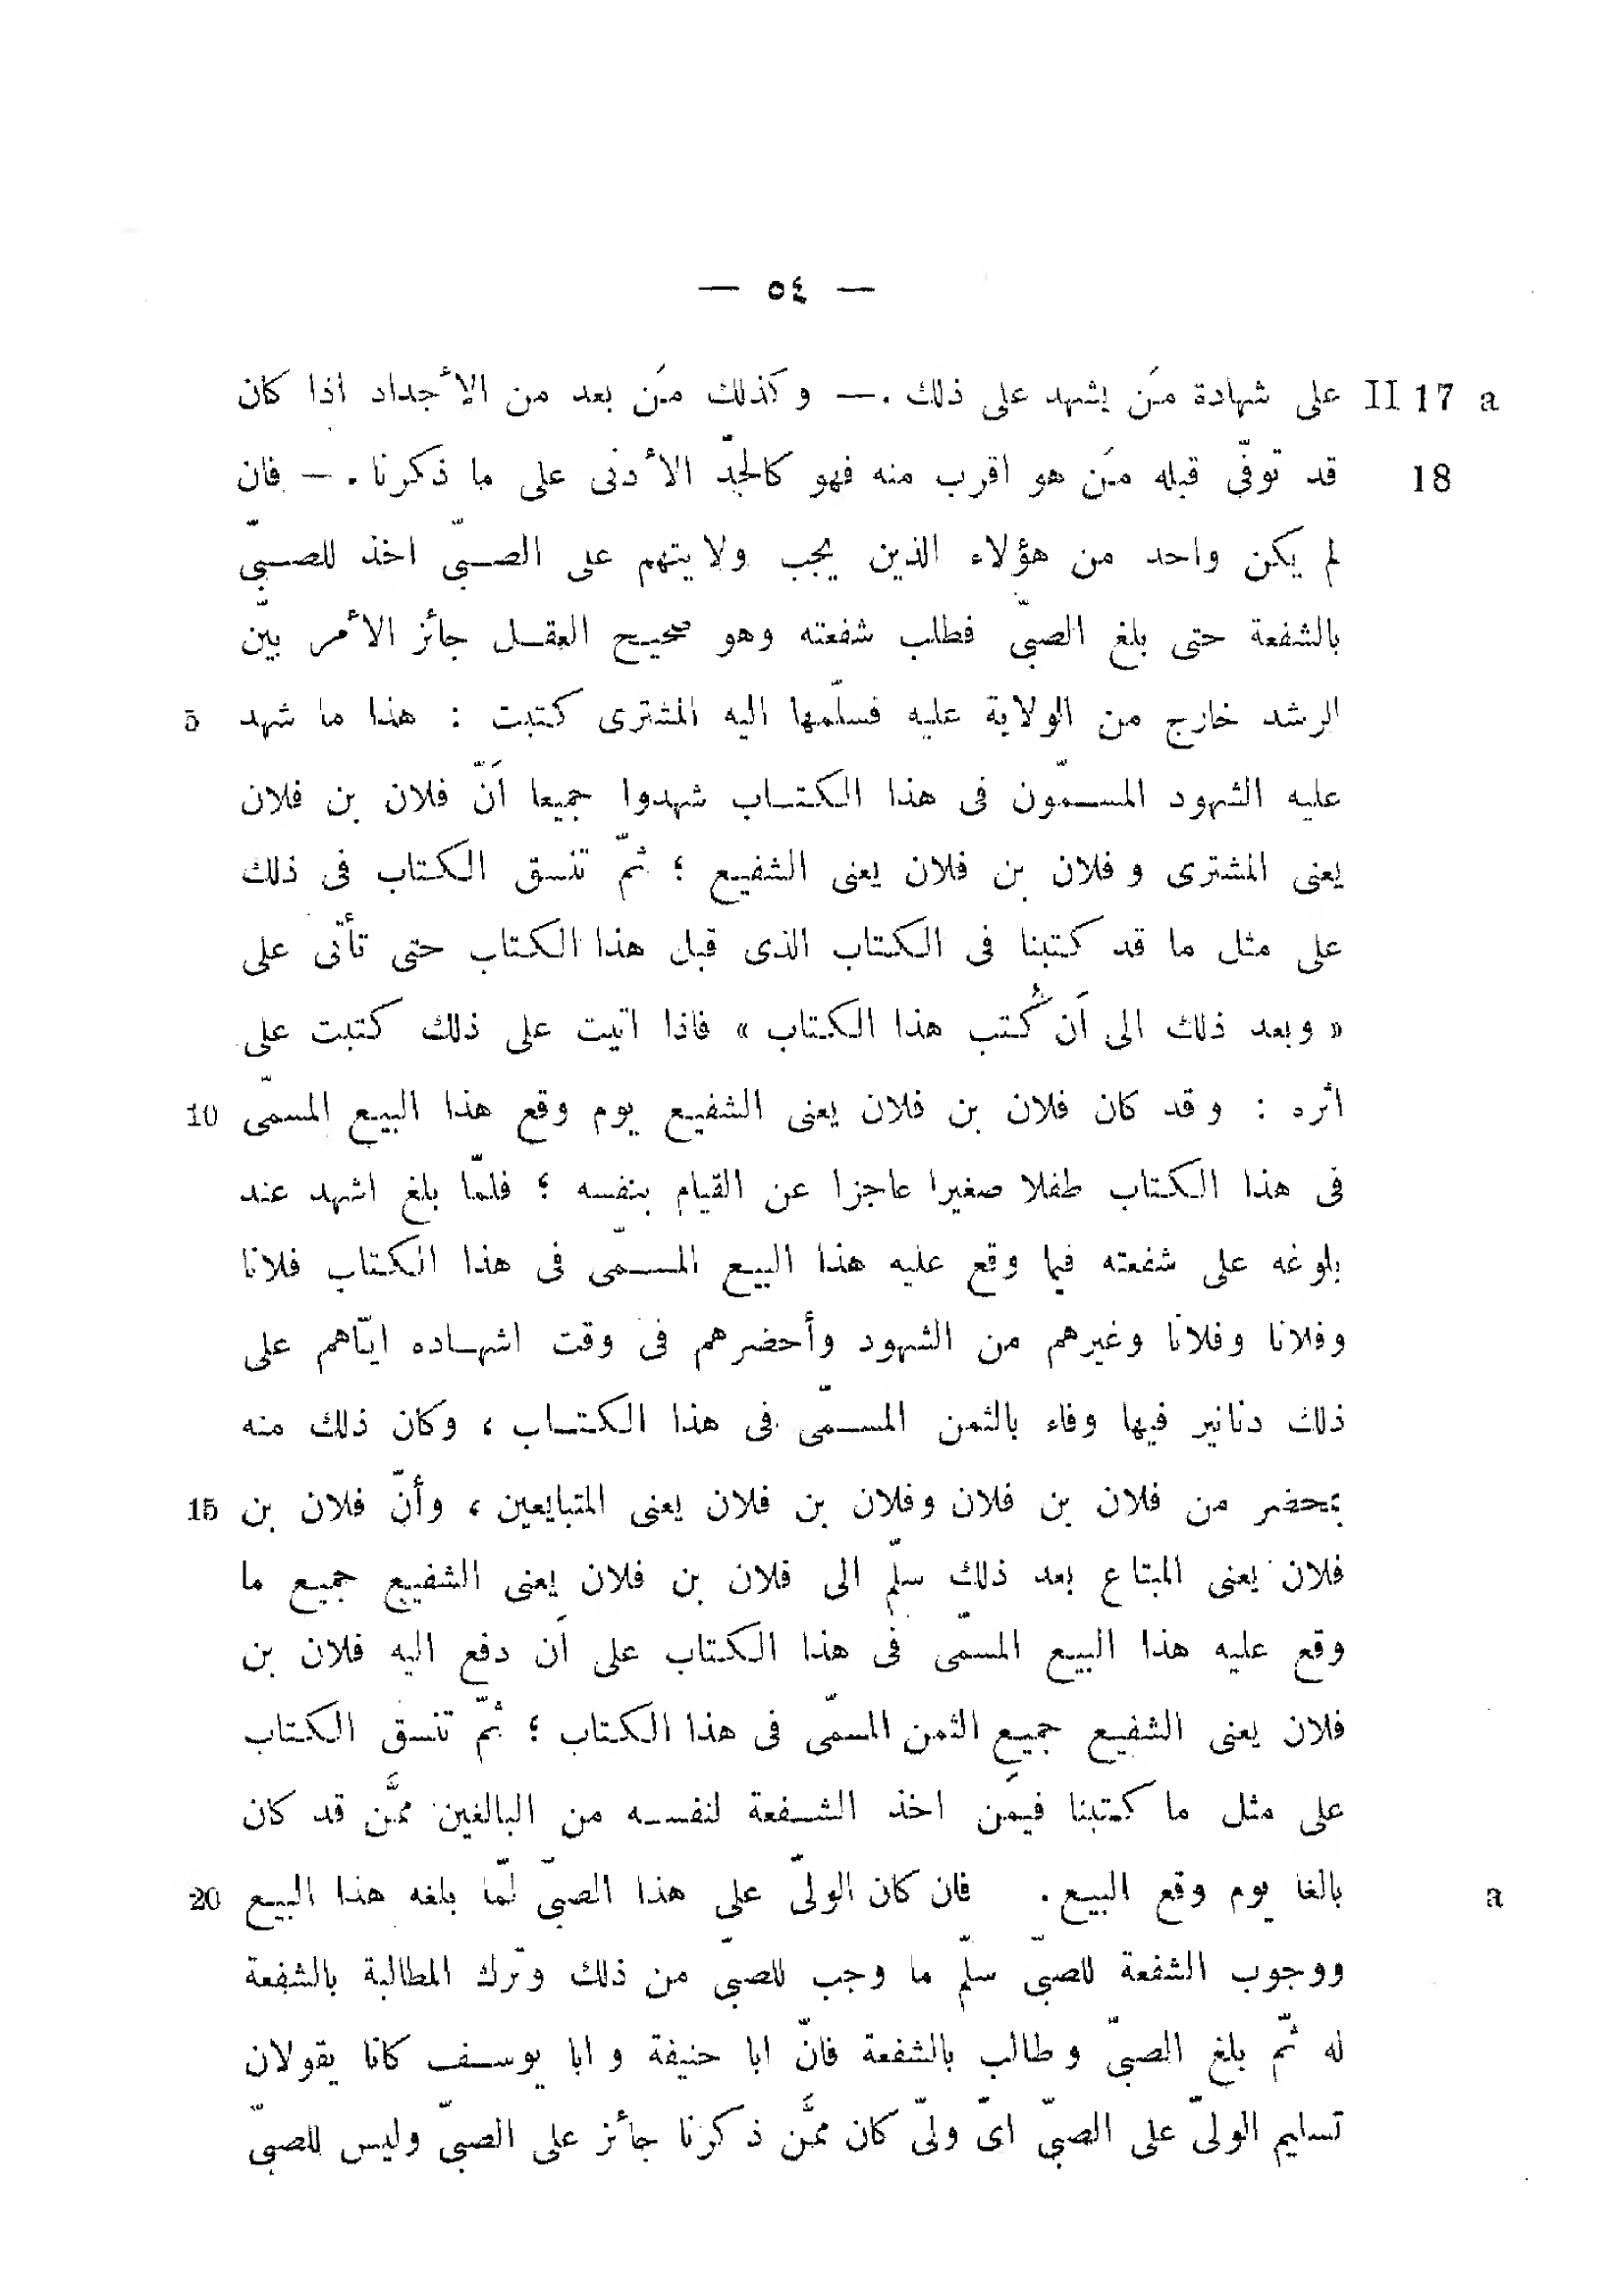 — ٥٤ —
على شهادة مَن يشهد على ذلك . — وكذلك مَن بعد من الأجداد اذا كان II 17 a
قد توفّى قبله مَن هو اقرب منه فهو كالجدّ الأدنى على ما ذكرنا . — فان 18
لم يكن واحد من هؤلاء الذين يجب ولايتهم على الصبىّ اخذ للصبىّ
بالشفعة حتى بلغ الصبىّ فطلب شفعته وهو صحيح العقل جائز الأمر بيّن
الرشد خارج من الولاية عليه فسلّمها اليه المشترى كتبت : هذا ما شهد 5
عليه الشهود المسمّون فى هذا الكتاب شهدوا جميعا أنّ فلان بن فلان
يعنى المشترى وفلان بن فلان يعنى الشفيع ؛ ثمّ تنسق الكتاب فى ذلك
على مثل ما قد كتبنا فى الكتاب الذى قبل هذا الكتاب حتى تأتى على
« وبعد ذلك الى أن كُتب هذا الكتاب » فاذا اتيت على ذلك كتبت على
اثره : وقد كان فلان بن فلان يعنى الشفيع يوم وقع هذا البيع المسمّى 10
فى هذا الكتاب طفلا صغيرا عاجزا عن القيام بنفسه ؛ فلمّا بلغ اشهد عند
بلوغه على شفعته فيما وقع عليه هذا البيع المسمّى فى هذا الكتاب فلانا
وفلانا وفلانا وغيرهم من الشهود وأحضرهم فى وقت اشهاده ايّاهم على
ذلك دنانير فيها وفاء بالثمن المسمّى فى هذا الكتاب ، وكان ذلك منه
بمحضر من فلان بن فلان وفلان بن فلان يعنى المتبايعين ، وأنّ فلان بن 15
فلان يعنى المبتاع بعد ذلك سلّم الى فلان بن فلان يعنى الشفيع جميع ما
وقع عليه هذا البيع المسمّى فى هذا الكتاب على أن دفع اليه فلان بن
فلان يعنى الشفيع جميع الثمن المسمّى فى هذا الكتاب ؛ ثمّ تنسق الكتاب
على مثل ما كتبنا فيمَن اخذ الشفعة لنفسه من البالغين ممَّن قد كان
بالغا يوم وقع البيع . فان كان الولىّ على هذا الصبىّ لمّا بلغه هذا البيع 20 a
ووجوب الشفعة للصبىّ سلّم ما وجب للصبىّ من ذلك وترك المطالبة بالشفعة
له ثمّ بلغ الصبىّ وطالب بالشفعة فانّ ابا حنيفة وابا يوسف كانا يقولان
تسليم الولىّ على الصبىّ اىّ ولىّ كان ممَّن ذكرنا جائز على الصبىّ وليس للصبىّ